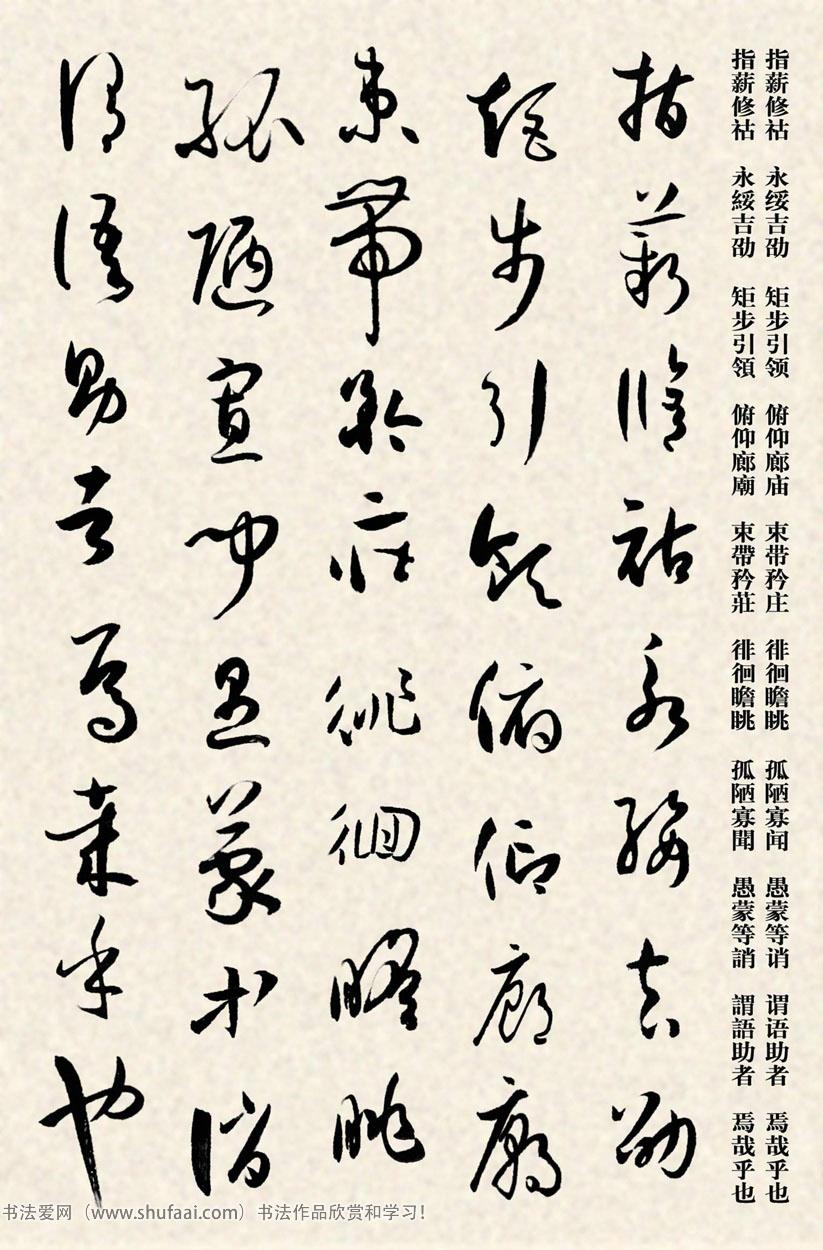 指薪修祜 永绥吉劭 矩步引领 俯仰廊庙 束带矜庄 徘徊瞻眺 孤陋寡闻 愚蒙等诮 谓语助者 焉哉乎也
指薪修祜 永綏吉劭 矩步引領 俯仰廊廟 束帶矜莊 徘徊瞻眺 孤陋寡聞 愚蒙等誚 謂語助者 焉哉乎也
指薪修祜永綏吉劭
矩步引領俯仰廊廟
束帶矜莊徘徊瞻眺
孤陋寡聞愚蒙等誚
謂語助者焉哉乎也
书法爱网（www.shufaai.com）书法作品欣赏和学习！